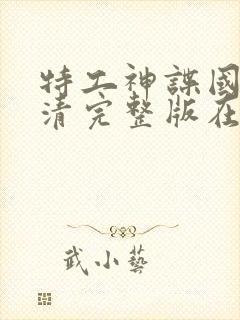 特工神諜國
清完整版在
武小藝